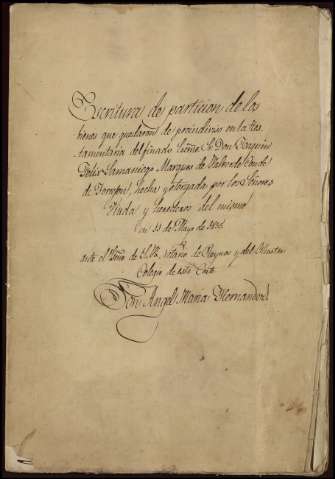 Escritura de particion de los
bienes que quedaron de proindiviso en la tes
tamentaria del finado Señor D. Don Joaquin
Felix Samaniego Marques de Valverde Conde
de Torrejon, hecha y otorgada por los Señores
Viuda y herederos del mismo
en 11 de Mayo de
ante el Sno de S. M. Notario de Reynos y del Ilustre
Colegio de esta Corte
Don Angel Maria Hernandez